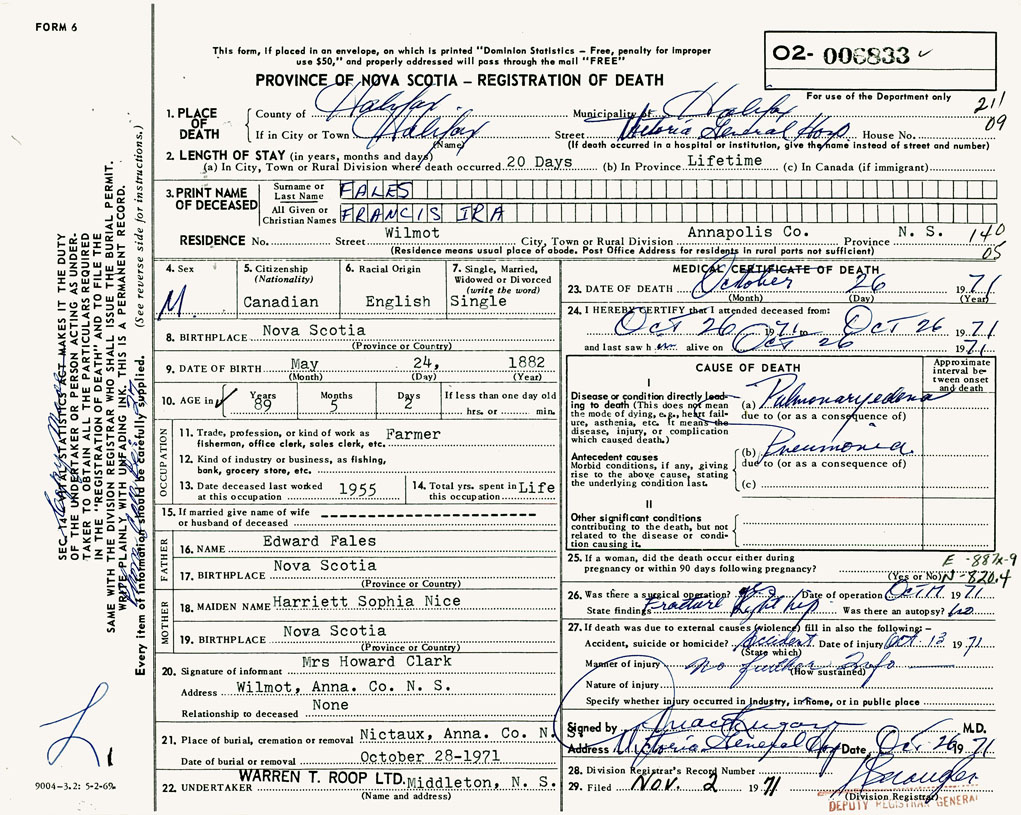 FORM 6
This form, if placed in an envelope, on which is printed "Dominion Statistics – Free, penalty for improper
use $50," and properly addressed will pass through the mail "FREE"
PROVINCE OF NOVA SCOTIA – REGISTRATION OF DEATH
O2- 006833
For use of the Department only
211
09
1. PLACE OF DEATH
County of Halifax Municipality of Halifax
If in City or Town Halifax Street Victoria General Hosp House No.
(Name) (If death occurred in a hospital or institution, give the name instead of street and number)
2. LENGTH OF STAY (in years, months and days)
(a) In City, Town or Rural Division where death occurred 20 Days (b) In Province Lifetime (c) In Canada (if immigrant)
3. PRINT NAME OF DECEASED
Surname or Last Name FALES
All Given or Christian Names FRANCIS IRA
RESIDENCE No. Street Wilmot City, Town or Rural Division Annapolis Co. Province N. S.
(Residence means usual place of abode. Post Office Address for residents in rural parts not sufficient)
140
05
4. Sex M.
5. Citizenship (Nationality) Canadian
6. Racial Origin English
7. Single, Married, Widowed or Divorced (write the word) Single
8. BIRTHPLACE Nova Scotia
(Province or Country)
9. DATE OF BIRTH May 24, 1882
(Month) (Day) (Year)
10. AGE in Years 89 Months 5 Days 2 If less than one day old hrs. or min.
OCCUPATION
11. Trade, profession, or kind of work as fisherman, office clerk, sales clerk, etc. Farmer
12. Kind of industry or business, as fishing, bank, grocery store, etc.
13. Date deceased last worked at this occupation 1955
14. Total yrs. spent in this occupation Life
15. If married give name of wife or husband of deceased
FATHER
16. NAME Edward Fales
17. BIRTHPLACE Nova Scotia
(Province or Country)
MOTHER
18. MAIDEN NAME Harriett Sophia Nice
19. BIRTHPLACE Nova Scotia
(Province or Country)
20. Signature of informant Mrs Howard Clark
Address Wilmot, Anna. Co. N. S.
Relationship to deceased None
21. Place of burial, cremation or removal Nictaux, Anna. Co. N.
Date of burial or removal October 28-1971
22. UNDERTAKER WARREN T. ROOP LTD. Middleton, N. S.
(Name and address)
MEDICAL CERTIFICATE OF DEATH
23. DATE OF DEATH October 26 1971
(Month) (Day) (Year)
24. I HEREBY CERTIFY that I attended deceased from:
Oct 26 1971 to Oct 26 1971
and last saw h alive on Oct 26 1971
CAUSE OF DEATH
Approximate interval between onset and death
I
Disease or condition directly leading to death (This does not mean the mode of dying, e.g., heart failure, asthenia, etc. It means the disease, injury, or complication which caused death.)
(a) Pulmonary edema
due to (or as a consequence of)
Antecedent causes
Morbid conditions, if any, giving rise to the above cause, stating the underlying condition last.
(b) Pneumonia
due to (or as a consequence of)
(c)
II
Other significant conditions contributing to the death, but not related to the disease or condition causing it.
25. If a woman, did the death occur either during pregnancy or within 90 days following pregnancy?
(Yes or No)
E -887x-9
N -820.4
26. Was there a surgical operation? Date of operation Oct 17 1971
State findings Fracture Right hip Was there an autopsy? No
27. If death was due to external causes (violence) fill in also the following:–
Accident, suicide or homicide? Accident Date of injury Oct. 13 1971
(State which)
Manner of injury No further Info
(How sustained)
Nature of injury
Specify whether injury occurred in industry, in home, or in public place
Signed by M.D.
Address Victoria General Hosp Date, Oct 26 1971
28. Division Registrar's Record Number
29. Filed NOV. 2 1971
(Division Registrar)
DEPUTY REGISTRAR GENERAL
SEC. 14 VITAL STATISTICS ACT MAKES IT THE DUTY
OF THE UNDERTAKER OR PERSON ACTING AS UNDER-
TAKER TO OBTAIN ALL THE PARTICULARS REQUIRED
IN THE "REGISTRATION OF DEATH" AND TO FILE THE
SAME WITH THE DIVISION REGISTRAR WHO SHALL ISSUE THE BURIAL PERMIT.
WRITE PLAINLY WITH UNFADING INK. THIS IS A PERMANENT RECORD.
Every item of information should be carefully supplied. (See reverse side for instructions.)
9004-3.2: 5-2-69